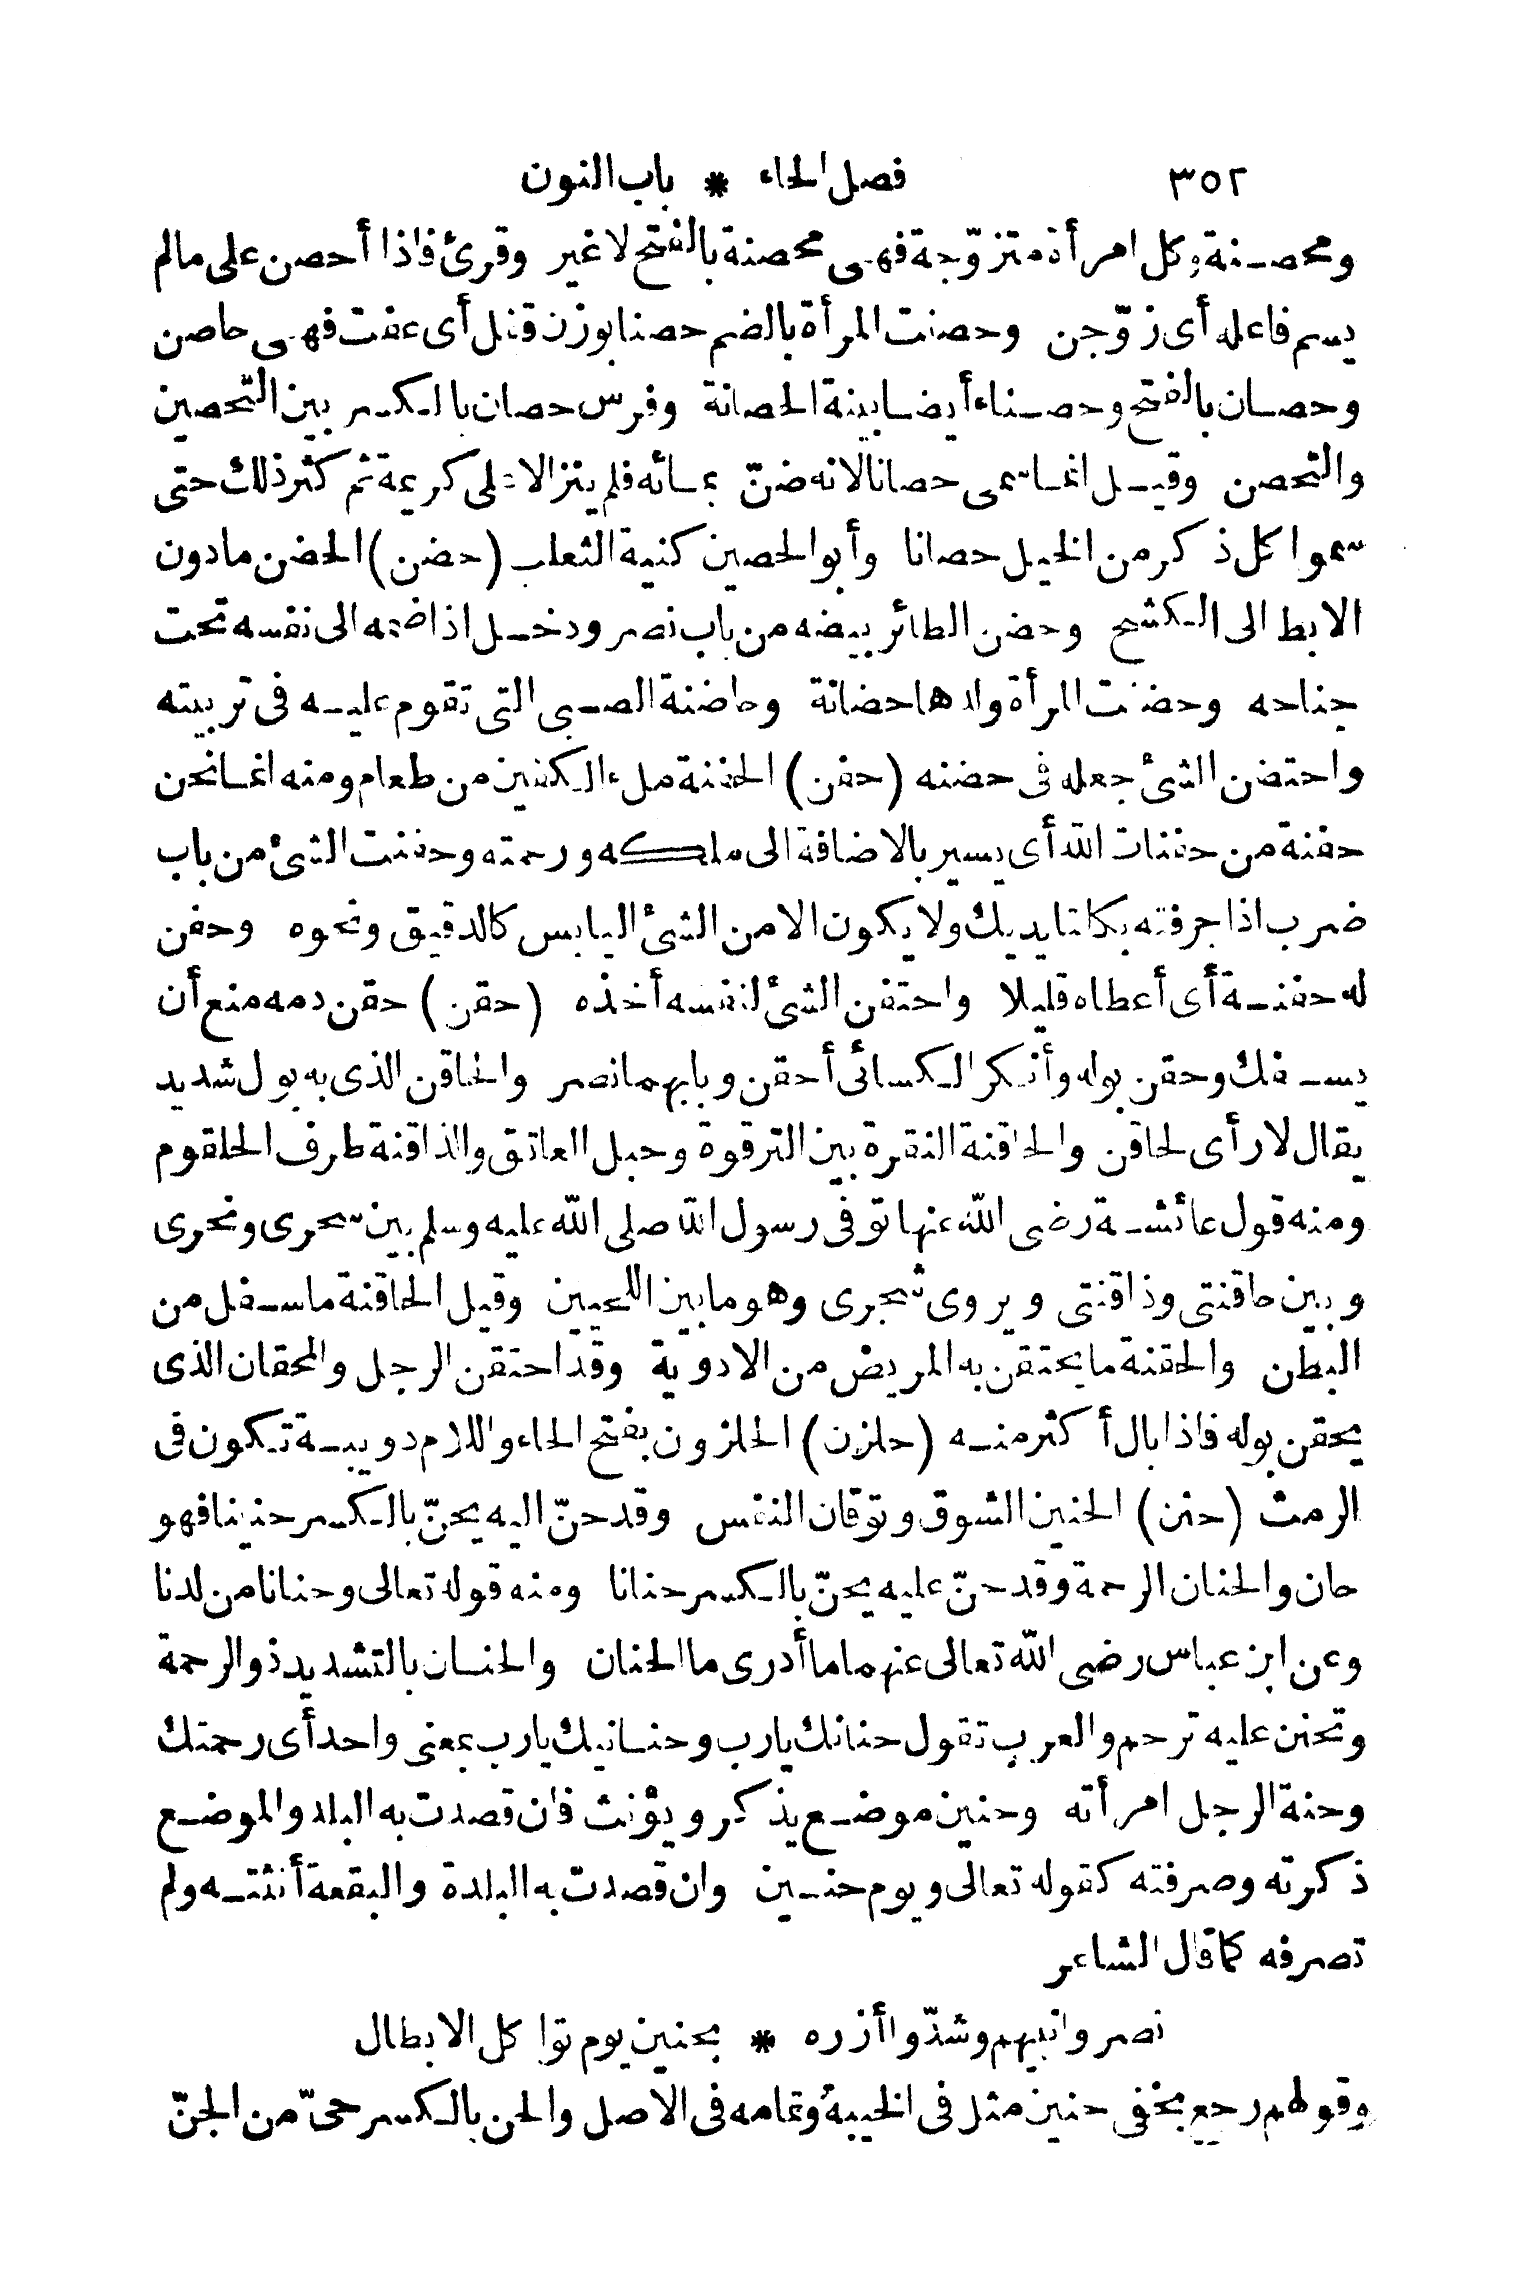 ٣٥٢ فصل الحاء * باب النون
ومحصنة وكل امرأة متزوّجة فهى محصنة بالفتح لا غير وقرئ فاذا أحصن على مالم
يسم فاعله أى زوّجن وحصنت المرأة بالضم حصنا بوزن قفل أى عفت فهى حاصن
وحصان بالفتح وحصناء أيضا بينة الحصانة وفرس حصان بالكسر بين التحصين
والتحصن وقيل انما سمى حصانا لانه ضنّ بمائه فلم ينز الا على كريمة ثم كثر ذلك حتى
سموا كل ذكر من الخيل حصانا وأبو الحصين كنية الثعلب (حضن) الحضن مادون
الابط الى الكشح وحضن الطائر بيضه من باب نصر ودخل اذا ضمه الى نفسه تحت
جناحه وحضنت المرأة ولدها حضانة وحاضنة الصبى التى تقوم عليه فى تربيته
واحتضن الشئ جعله فى حضنه (حفن) الحفنة ملء الكفين من طعام ومنه انما نحن
حفنة من حفنات الله أى يسير بالاضافة الى ملكه ورحمته وحفنت الشئ من باب
ضرب اذا جرفته بكلتا يديك ولا يكون الا من الشئ اليابس كالدقيق ونحوه وحفن
له حفنة أى أعطاه قليلا واحتفن الشئ لنفسه أخذه (حقن) حقن دمه منع أن
يسفك وحقن بوله وأنكر الكسائى أحقن وبابهما نصر والحاقن الذى به بول شديد
يقال لا رأى لحاقن والحاقنة النقرة بين الترقوة وحبل العاتق والذاقنة طرف الحلقوم
ومنه قول عائشة رضى الله عنها توفى رسول الله صلى الله عليه وسلم بين سحرى ونحرى
وبين حاقنتى وذاقنتى ويروى شجرى وهو ما بين اللحيين وقيل الحاقنة ما سفل من
البطن والحقنة ما يحتقن به المريض من الادوية وقد احتقن الرجل والمحقان الذى
يحقن بوله فاذا بال أكثر منه (حلزن) الحلزون بفتح الحاء واللام دويبة تكون فى
الرمث (حنن) الحنين الشوق وتوقان النفس وقد حنّ اليه يحنّ بالكسر حنينا فهو
حان والحنان الرحمة وقد حنّ عليه يحنّ بالكسر حنانا ومنه قوله تعالى وحنانا من لدنا
وعن ابن عباس رضى الله تعالى عنهما ما أدرى ما الحنان والحنان بالتشديد ذو الرحمة
وتحنن عليه ترحم والعرب تقول حنانك يارب وحنانيك يارب بمعنى واحد أى رحمتك
وحنة الرجل امرأته وحنين موضع يذكر ويؤنث فان قصدت به البلد والموضع
ذكرته وصرفته كقوله تعالى ويوم حنين وان قصدت به البلدة والبقعة أنثته ولم
تصرفه كما قال الشاعر
نصروا نبيهم وشدّوا أزره * بحنين يوم توا كل الابطال
وقولهم رجع بخفى حنين مثل فى الخيبة وتمامه فى الاصل والحن بالكسر حىّ من الجنّ